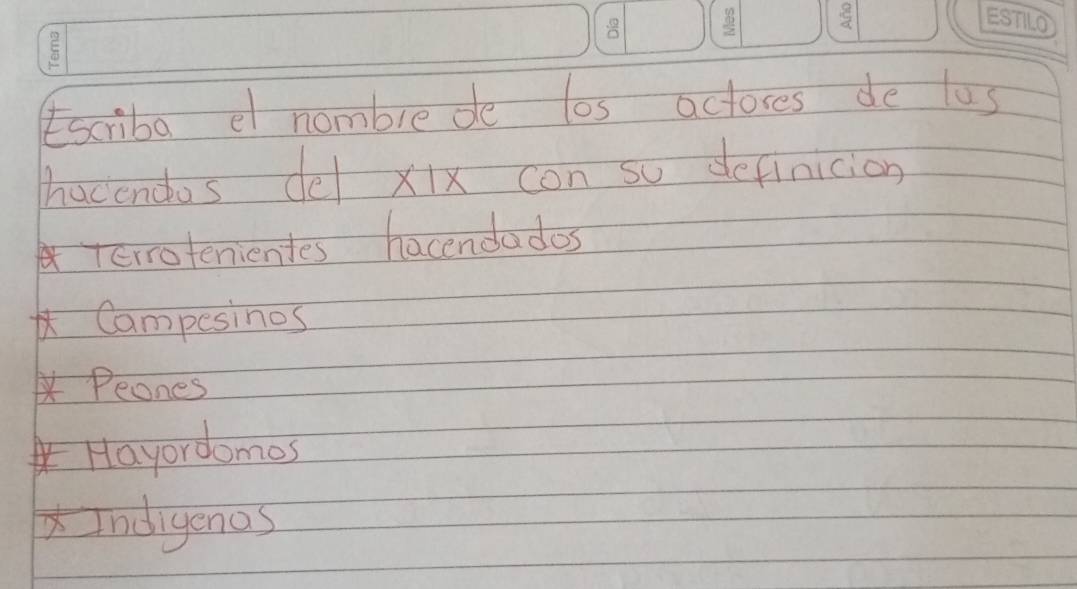 Tema Dia Mes Año ESTILO
Escriba el nombre de los actores de las
haciendas del XIX con su definicion
* Terratenientes hacendados
* Campesinos
* Peones
* Mayordomos
* Indigenas